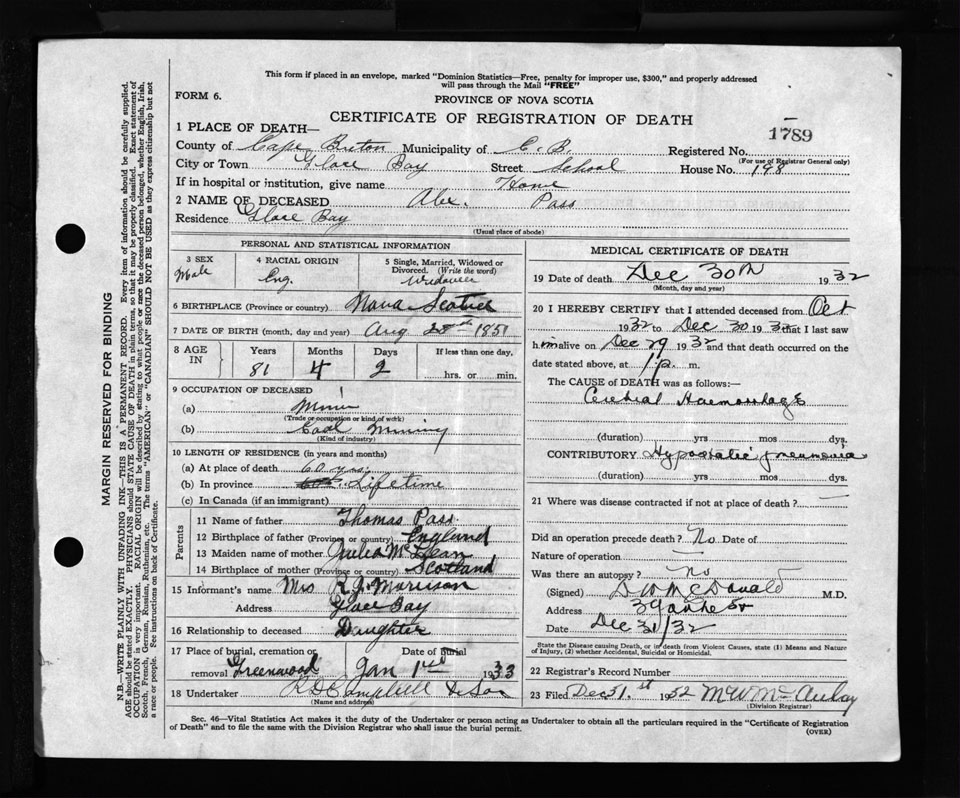 This form if placed in an envelope, marked "Dominion Statistics—Free, penalty for improper use, $300," and properly addressed
will pass through the Mail "FREE"
FORM 6.
PROVINCE OF NOVA SCOTIA
CERTIFICATE OF REGISTRATION OF DEATH
1789
1 PLACE OF DEATH—
County of Cape Breton Municipality of C. B. Registered No.
(For use of Registrar General only)
City or Town Glace Bay Street School House No. 198
If in hospital or institution, give name Home
2 NAME OF DECEASED Alex. Pass
Residence Glace Bay
(Usual place of abode)
PERSONAL AND STATISTICAL INFORMATION
3 SEX Male
4 RACIAL ORIGIN Eng.
5 Single, Married, Widowed or Divorced. (Write the word) Widower
6 BIRTHPLACE (Province or country) Nova Scotia
7 DATE OF BIRTH (month, day and year) Aug 28th 1851
8 AGE IN Years Months Days If less than one day,
81 4 2 hrs. or min.
9 OCCUPATION OF DECEASED
(a) Miner
(Trade or occupation or kind of work)
(b) Coal Mining
(Kind of industry)
10 LENGTH OF RESIDENCE (in years and months)
(a) At place of death 60 yrs.
(b) In province Lifetime
(c) In Canada (if an immigrant)
Parents
11 Name of father Thomas Pass
12 Birthplace of father (Province or country) England
13 Maiden name of mother Julia McLean
14 Birthplace of mother (Province or country) Scotland
15 Informant's name Mrs R. J. Morrison
Address Glace Bay
16 Relationship to deceased Daughter
17 Place of burial, cremation or removal Greenwood Date of Burial Jan 1st 1933
18 Undertaker R D Campbell & Son
(Name and address)
MEDICAL CERTIFICATE OF DEATH
19 Date of death Dec 30th 1932
(Month, day and year)
20 I HEREBY CERTIFY that I attended deceased from Oct
1932 to Dec 30 1932 that I last saw
him alive on Dec 29 1932 and that death occurred on the
date stated above, at 1 p. m.
The CAUSE of DEATH was as follows:
Cerebral Haemorrhage
(duration) yrs mos dys.
CONTRIBUTORY Hypostatic pneumonia
(duration) yrs mos dys.
21 Where was disease contracted if not at place of death? —
Did an operation precede death? No Date of
Nature of operation —
Was there an autopsy? No
(Signed) D W McDonald M.D.
Address
Date Dec 31/32
State the Disease causing Death, or in death from Violent Causes, state (1) Means and Nature
of Injury, (2) whether Accidental, Suicidal or Homicidal.
22 Registrar's Record Number
23 Filed Dec 31st 1932 M W McAulay
(Division Registrar)
Sec. 46—Vital Statistics Act makes it the duty of the Undertaker or person acting as Undertaker to obtain all the particulars required in the "Certificate of Registration
of Death" and to file the same with the Division Registrar who shall issue the burial permit.
(OVER)
MARGIN RESERVED FOR BINDING
N.B.—WRITE PLAINLY WITH UNFADING INK—THIS IS A PERMANENT RECORD. Every item of information should be carefully supplied.
AGE should be stated EXACTLY. PHYSICIANS should STATE CAUSE OF DEATH in plain terms, so that it may be properly classified. Exact statement of
OCCUPATION is very important. RACIAL ORIGIN will be described by stating to what people or race the deceased person belonged, whether English, Irish,
Scotch, French, German, Russian, Ruthenian, etc. The terms "AMERICAN" or "CANADIAN" SHOULD NOT BE USED as they express citizenship but not
a race or people. See instructions on back of Certificate.